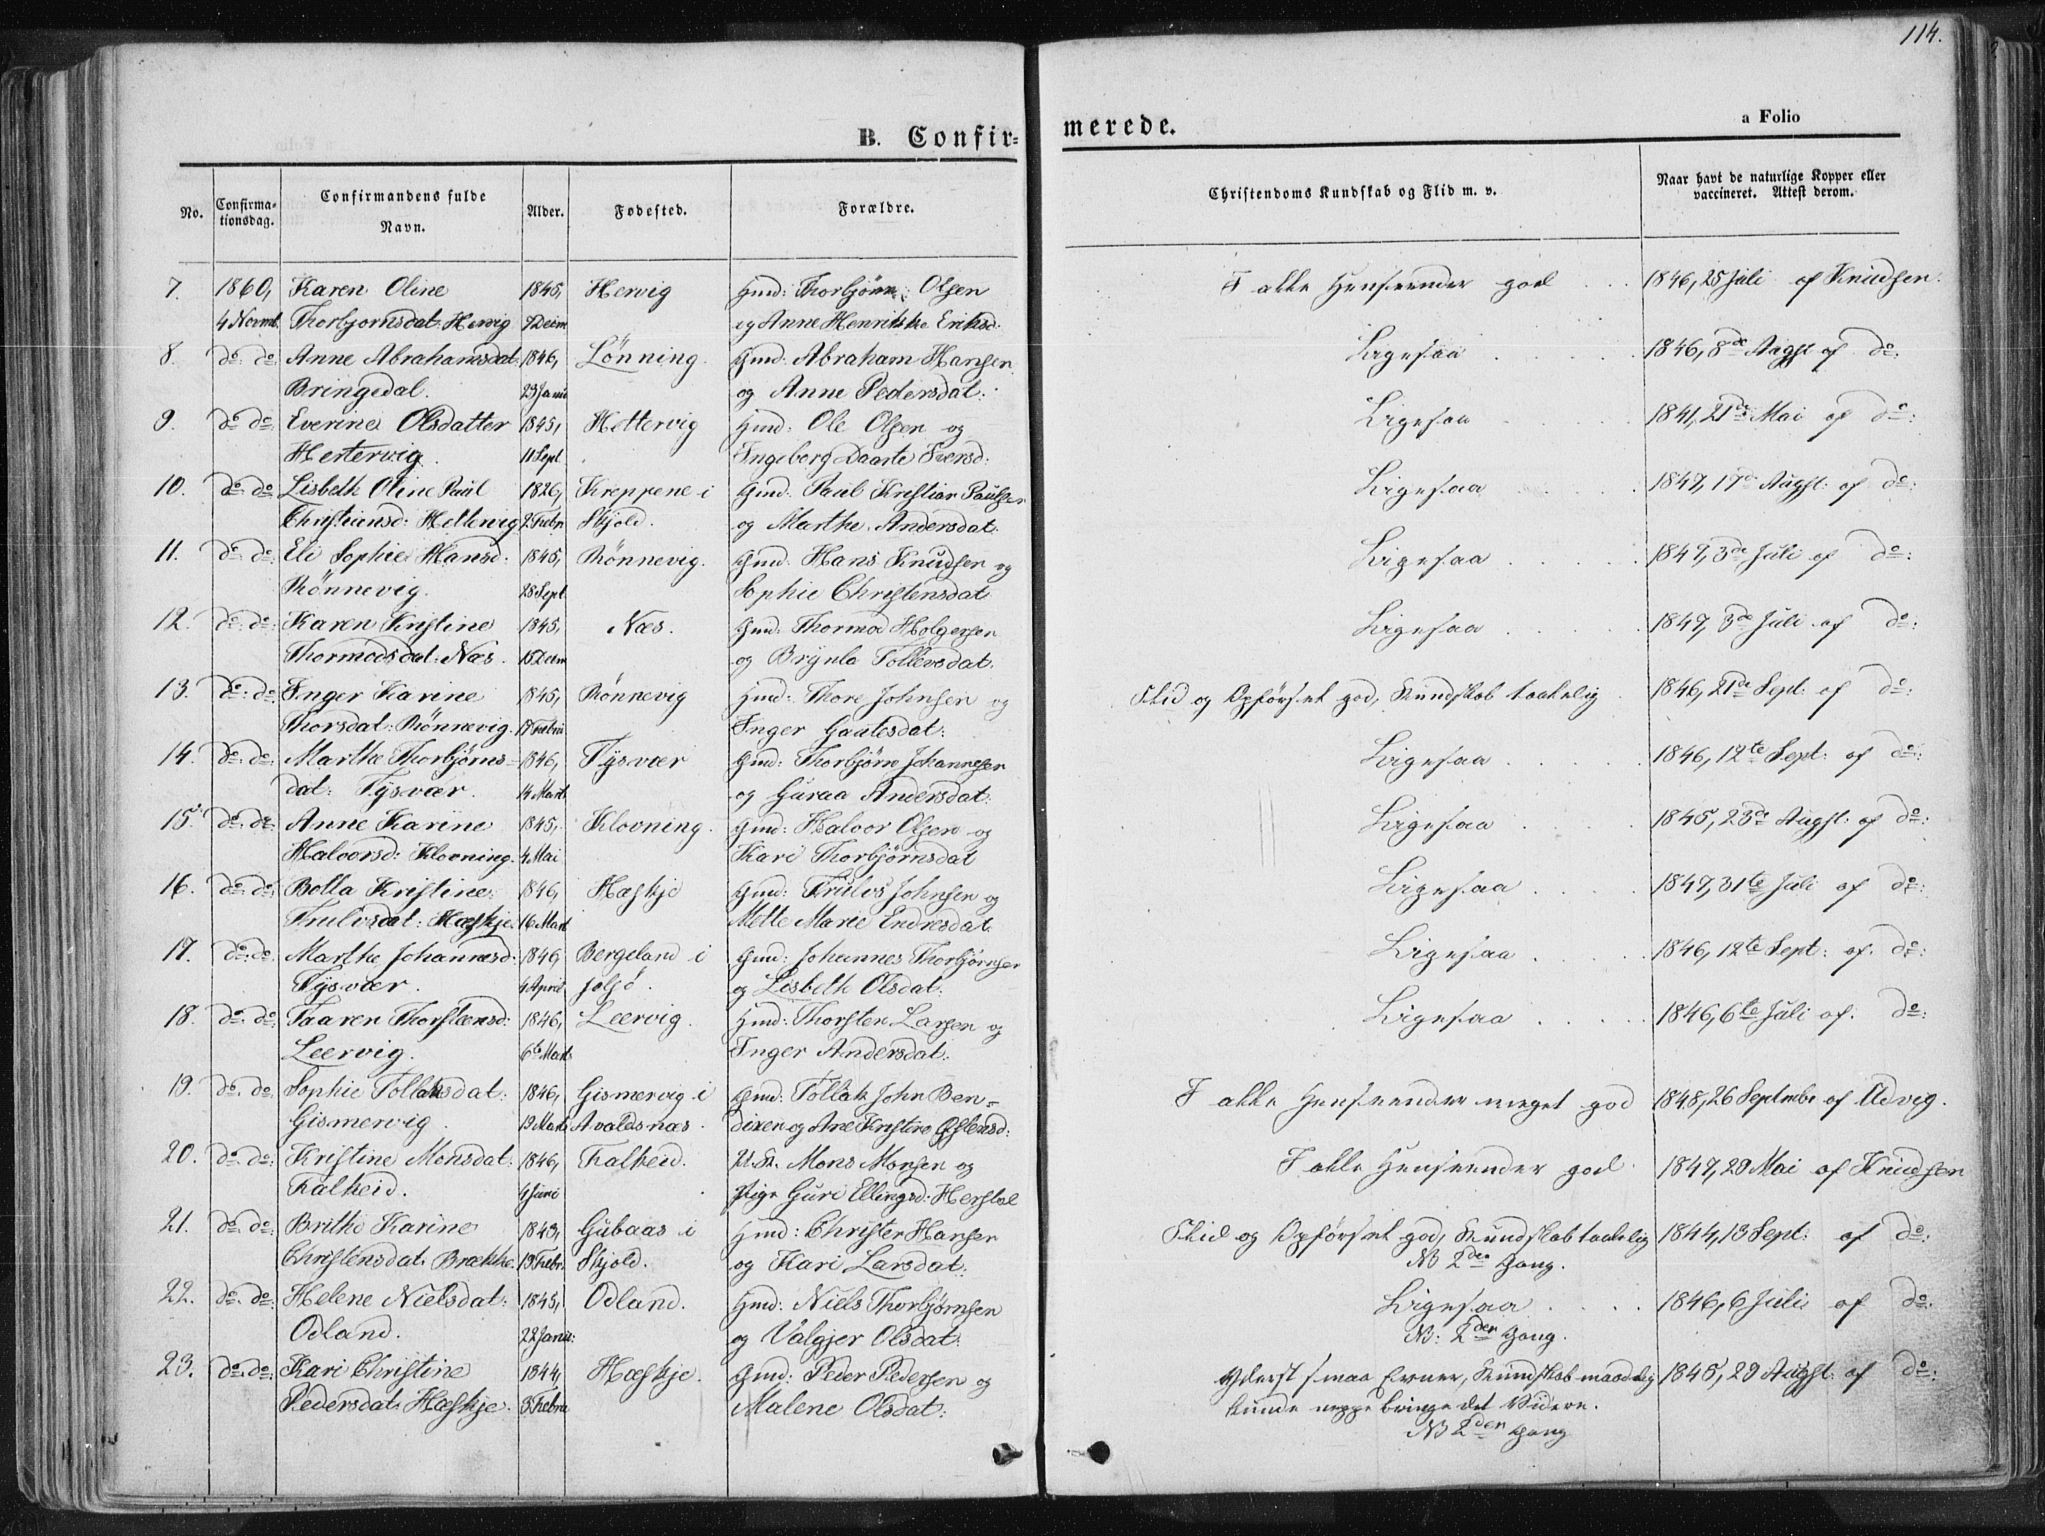 114.
B. Confir-
merede.
a Folio
No.
Confirma-
tionsdag.
Confirmandens fulde
Navn.
Alder.
Fødested.
Forældre.
Christendoms Kundskab og Flid m. v.
Naar havt de naturlige Kopper eller
vaccineret. Attest derom.
7. 1860, Karen Oline 1845, Hervig Gmd: Thorbjørn Olsen I alle Henseender god . . . 1846, 25 Juli af Knudsen.
4 Novmb. Thorbjornsdat: Hervig 9 Decim og Anne Henrikke Eriksd:
8. do do Anne Abrahamsdat: 1846, Lønning. Gmd: Abraham Hansen Ligesaa . . . . 1846, 8de Augst af do:
Bringedal. 23 Janu og Anne Pedersdat:
9. do do: Everine Olsdatter 1845, Hettervig Gmd: Ole Olsen og Ligesaa . . . . 1841, 21de Mai af do:
Hettervig. 11 Sept Ingeberg Daarte Iversd:
10. do do Lisbeth Oline Paul 1826, Kreppene i Gmd: Paul Kristian Paulsen Ligesaa . . . . 1847, 17de Augst: af do:
Christiansd: Hettervig 2 Febr. Skjold. og Marthe Andersdat:
11. do do: Eli Sophie Hansd: 1845, Rønnevig. Gmd: Hans Knudsen og Ligesaa . . . . 1847, 3de Juli af do:
Rønnevig. 28 Sept Sophie Christensdat
12. do: do: Karen Kristine 1845, Næs. Gmd: Thormod Holgersen Ligesaa . . . . 1847, 3de Juli af do:
Thormodsdat: Næs. 15 Decim og Brynla Tollevsdat:
13. do: do: Inger Karine 1845, Rønnevig Gmd: Thore Johnsen og Flid og Opførsel god, Kundskab taalelig 1846, 21de Sept: af do:
Thorsdat: Rønnevig. Inger Gautesdat:
14. do: do: Marthe Thorbjørns- 1846, Tysvær Gmd: Thorbjørn Johannesen Ligesaa . . . . 1846, 12te Sept: af do:
dat: Tysvær. 14 Marts og Guraa Andersdat:
15. do. do: Anne Karine 1845, Klovning. Gmd: Halvor Olsen og Ligesaa . . . . 1845, 23de Augst: af do:
Halvorsd: Klovning. 4 Mai Kari Thorbjørnsdat
16. do: do: Bolla Kristine 1846, Hæskje Gmd: Trulvs Johnsen og Ligesaa . . . . 1847, 31te Juli af do:
Trulvsdat: Hæskje. 16 Mart Mette Marie Endresdat
17. do: do. Marthe Johannesd: 1846, Bergeland i Gmd: Johannes Thorbjørnsen Ligesaa . . . . 1846, 12te Sept: af. do:
Tysvær. 4 April og Lisbeth Olsdat:
18. do. do: Taaren Thorstensd: 1846, Leervig. Gmd: Thorsten Larsen og Ligesaa . . . . 1846, 6te Juli af. do:
Leervig. 6te Mart Inger Andersdat:
19. do. do: Sophie Tollaksdat: 1846, Gismervig i Gmd: Tollak John Ben- I alle Henseender meget god 1848, 26 September af Udvig.
Gismervig. 19 Marts Avaldsnæs. dixen og Ane Kristine
20. do. do: Kristine Monsdat: 1846, Falkeid. Mons Monsen og I alle Henseender god. 1847, 20 Mai af Knudsen
Falkeid. 4 Juni Pige Guri Ellingsd: Herstøl
21. do: do: Brithe Karine 1843, Gubaas i Gmd: Christen Hansen Flid og Opførsel god, Kundskab taalelig 1844, 13 Sept: af do:
Christensdat: Brække. 13 Febr. Skjold. og Kari Larsdat: NB 2den Gang.
22. do. do: Helene Nielsdat: 1845, Odland. Gmd: Niels Thorbjørnsen Ligesaa . . . . 1846, 6 Julii af do.
Odland. 22 Janu: og Valgjer Olsdat: NB: 2den Gang.
23. do. do: Kari Christine 1844, Hæskje. Gmd: Peder Pedersen og Yderst smaa Evner, Kundskab maadelig 1845, 29 Augst: af do:
Pedersdat: Hæskje. 3 Febru Malene Olsdat: kunde neppe bringe det Videre.
NB 2den Gang